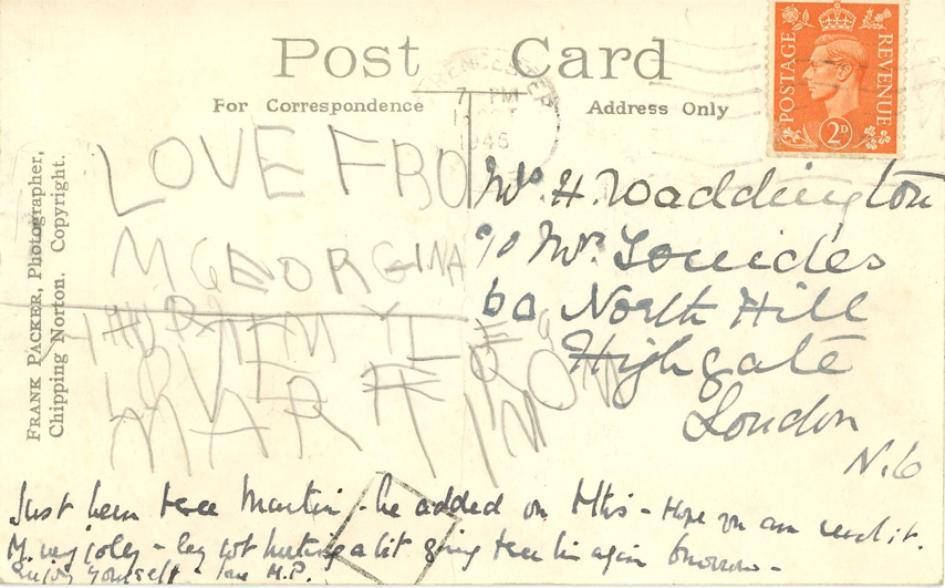 Post Card
For Correspondence
Address Only
POSTAGE
REVENUE
2D
7 PM
FRANK PACKER, Photographer,
Chipping Norton. Copyright.
LOVE FRO
M GEORGINA
LOVE FRO M
MARTIN
Mrs. H. Waddington
c/o Mrs. Ionides
60 North Hill
Highgate
London
N.6
Just been to see Martin - he added on this - Hope you can read it.
M. very jolly - leg not hurting a bit going to see him again tomorrow -
Enjoy yourself - love M.P.